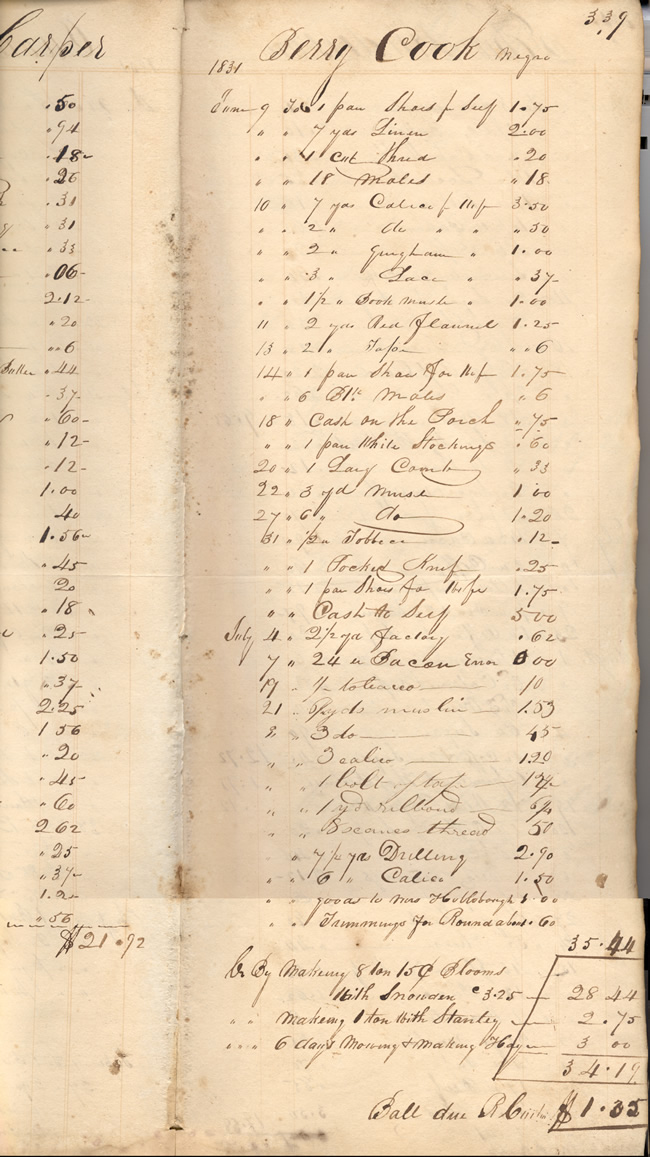 Carper
.50
.94
.18-
.26
.31
.31
.33
.06-
2.12-
.20
..6
Butter .44
.37-
.60-
.12-
.12-
1.00
.40
1.56-
.45
20
.18
.25
1.50
.37
2.25
1 56
.20
.45-
.60
2 62
.25
.37-
1.2-
.56
$21.92
339
1831 Berry Cook Negro
June 9 To 1 pair Shoes f Self 1.75
" " 7 yds Linen 2.00
" " 1 cut thred .20
" " 18 Molds " 18
10 " 7 yds Calico f Wif 3.50
" " 2 " do " " " 50
" " 2 " Gingham " 1.00
" " 3 " Lace " .37-
" " 1 1/2 " Book musl " 1.00
11 " 2 yds Red Flannel 1.25
13 " 2 " Tape " " 6
14 " 1 pair Shoes for Wif 1.75
" 6 Molds " 6
18 " Cash on the Porch " 75
" " 1 pair White Stockings .60
20 " 1 Larg Comb " 33
22 " 3 yd musl 1 00
27 " 6 " do 1.20
31 " 1/2 " Tobbco " .12-
" " 1 Pocked Knif .25
" " 1 pair Shoes for Wife 1.75
" " Cash to Self 5 00
July 4 " 2 1/2 yd Factory .62
7 " 24 Bacon Error 00
19 " tobacco 10
21 " yds muslin 1.53
" " 3 do 45
" " 3 calico 1.20
" " 1 bolt of tape
" " 1 yd ribbond
" " 8 thread 50
" " 7 1/2 yds Drilling 2.90
" " 6 " Calico 1.50
" " goods to Mrs
" " Trummings for Roundabout .60
35.44
Cr By Makeing 8 ton 15 Blooms
With Snowden 3.25 28 44
" " Makeing 1 ton With Stanley 2.75
" " " 6 days Mowing & Making Hay 3 00
34.19
Ball due $1.35